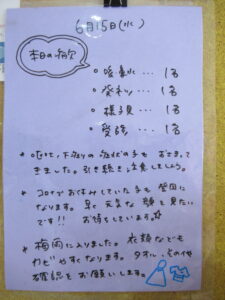 6月15日(水)
本日の病欠
・咳鼻水… 1名
・発ネツ… 1名
・様子見… 1名
・受診… 1名
* 嘔吐、下痢りの症状の子も おさまって
きました。引き続き注意しましょう。
* コロナでお休みしていた子も 登園に
なります。早く元気な顔を見たい
です!! お待ちしています☆
* 梅雨に入りました。衣類なども
カビやすくなります。タオル、
確認をお願いします。